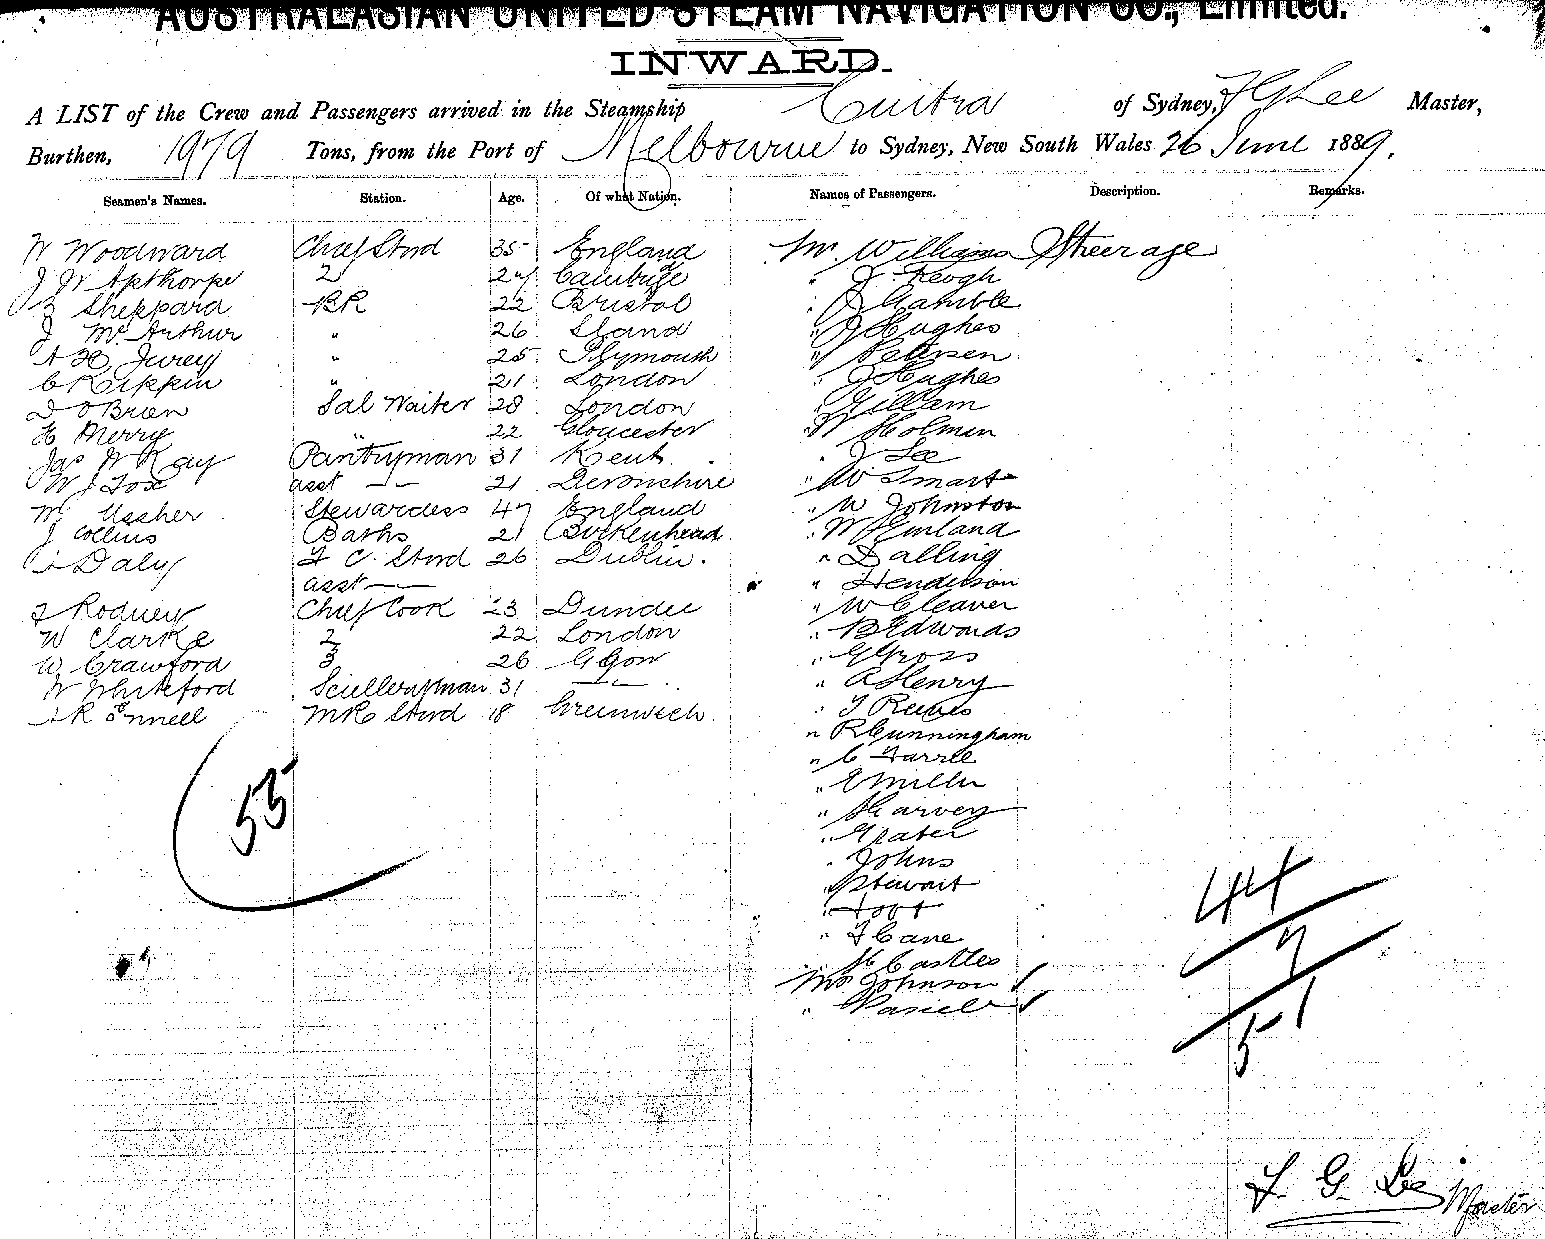 AUSTRALASIAN UNITED STEAM NAVIGATION CO., Limited.
INWARD.
A LIST of the Crew and Passengers arrived in the Steamship Cuitra of Sydney, F G Lee Master,
Burthen, 1979 Tons, from the Port of Melbourne to Sydney, New South Wales 26 June 1889.
Seamen's Names. Station. Age. Of what Nation. Names of Passengers. Description. Remarks.
W Woodward Chief Stwd 35 England Mr. Williams Steerage
J W Apthorpe 2 27 Cambrige " J Keogh
Sheppard BR 22 Bristol " J Gamble
J McArthur " 26 Sland " J Hughes
A H Jurey " 25 Plymouth " Petersen
C Kippin " 21 London " J Hughes
D O'Brien Sal Waiter 28 London " Gilliam
H Merry " 22 Gloucester " W Holman
Jas W Kay Pantryman 31 Kent " J Lee
W J Fox asst —— 21 Devonshire " W Smart
M Ussher Stewardess 47 England " W Johnston
J Collins Baths 21 Birkenhead "
Daly F C. Stwd 26 Dublin. " Dalling
asst —— " Henderson
J Rodney Chief Cook 23 Dundee " W Cleaver
W Clarke 2 22 London " B Edwards
W Crawford 3 26 G Gow " G Gross
W Whiteford Sculleryman 31 —"— " A Henry
MR Stwd 18 Greenwich " T Reeves
" R Cunningham
" C Farrell
" E Miller
55 " Harvey
" Grater
" Johns
" Stewart
44 "
" F Cane
7 " H Castles
Mrs Johnson /
51 " /
F. G. Lee Master